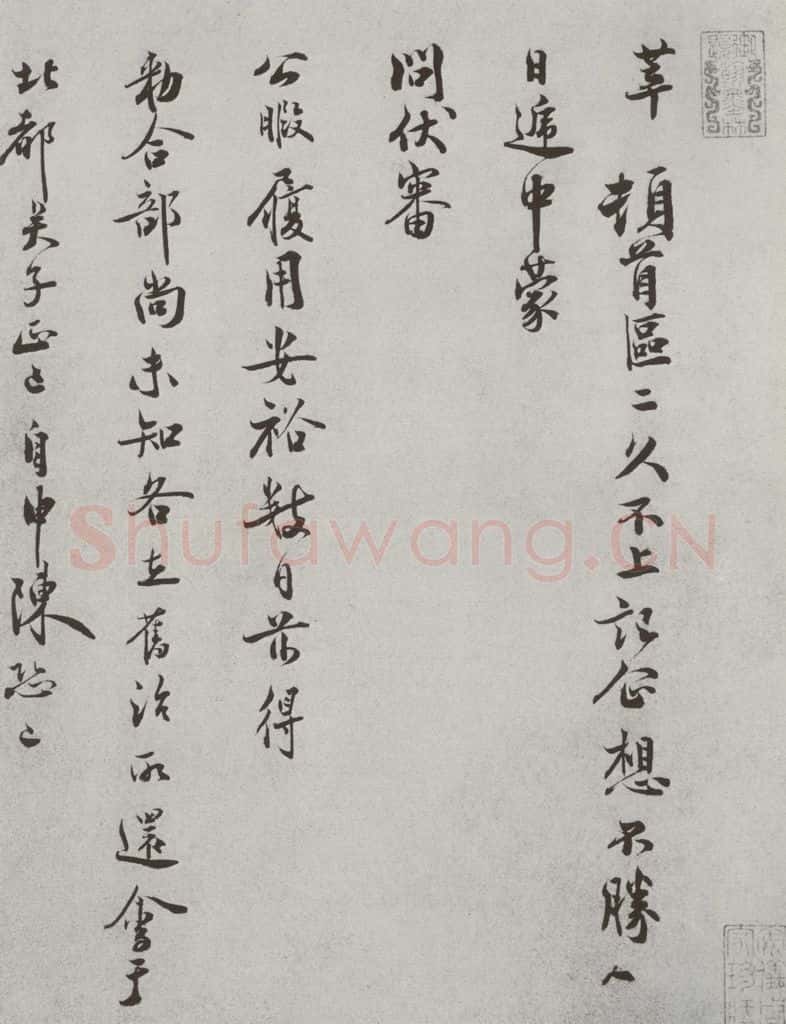 莘 頓首區〻久不上記企想不勝人
日遞中蒙
問伏審
公暇履用安裕數日前得
勅合部尚未知各在舊治所還會于
北都吴子正〻自申陳恐〻
Shufawang.CN